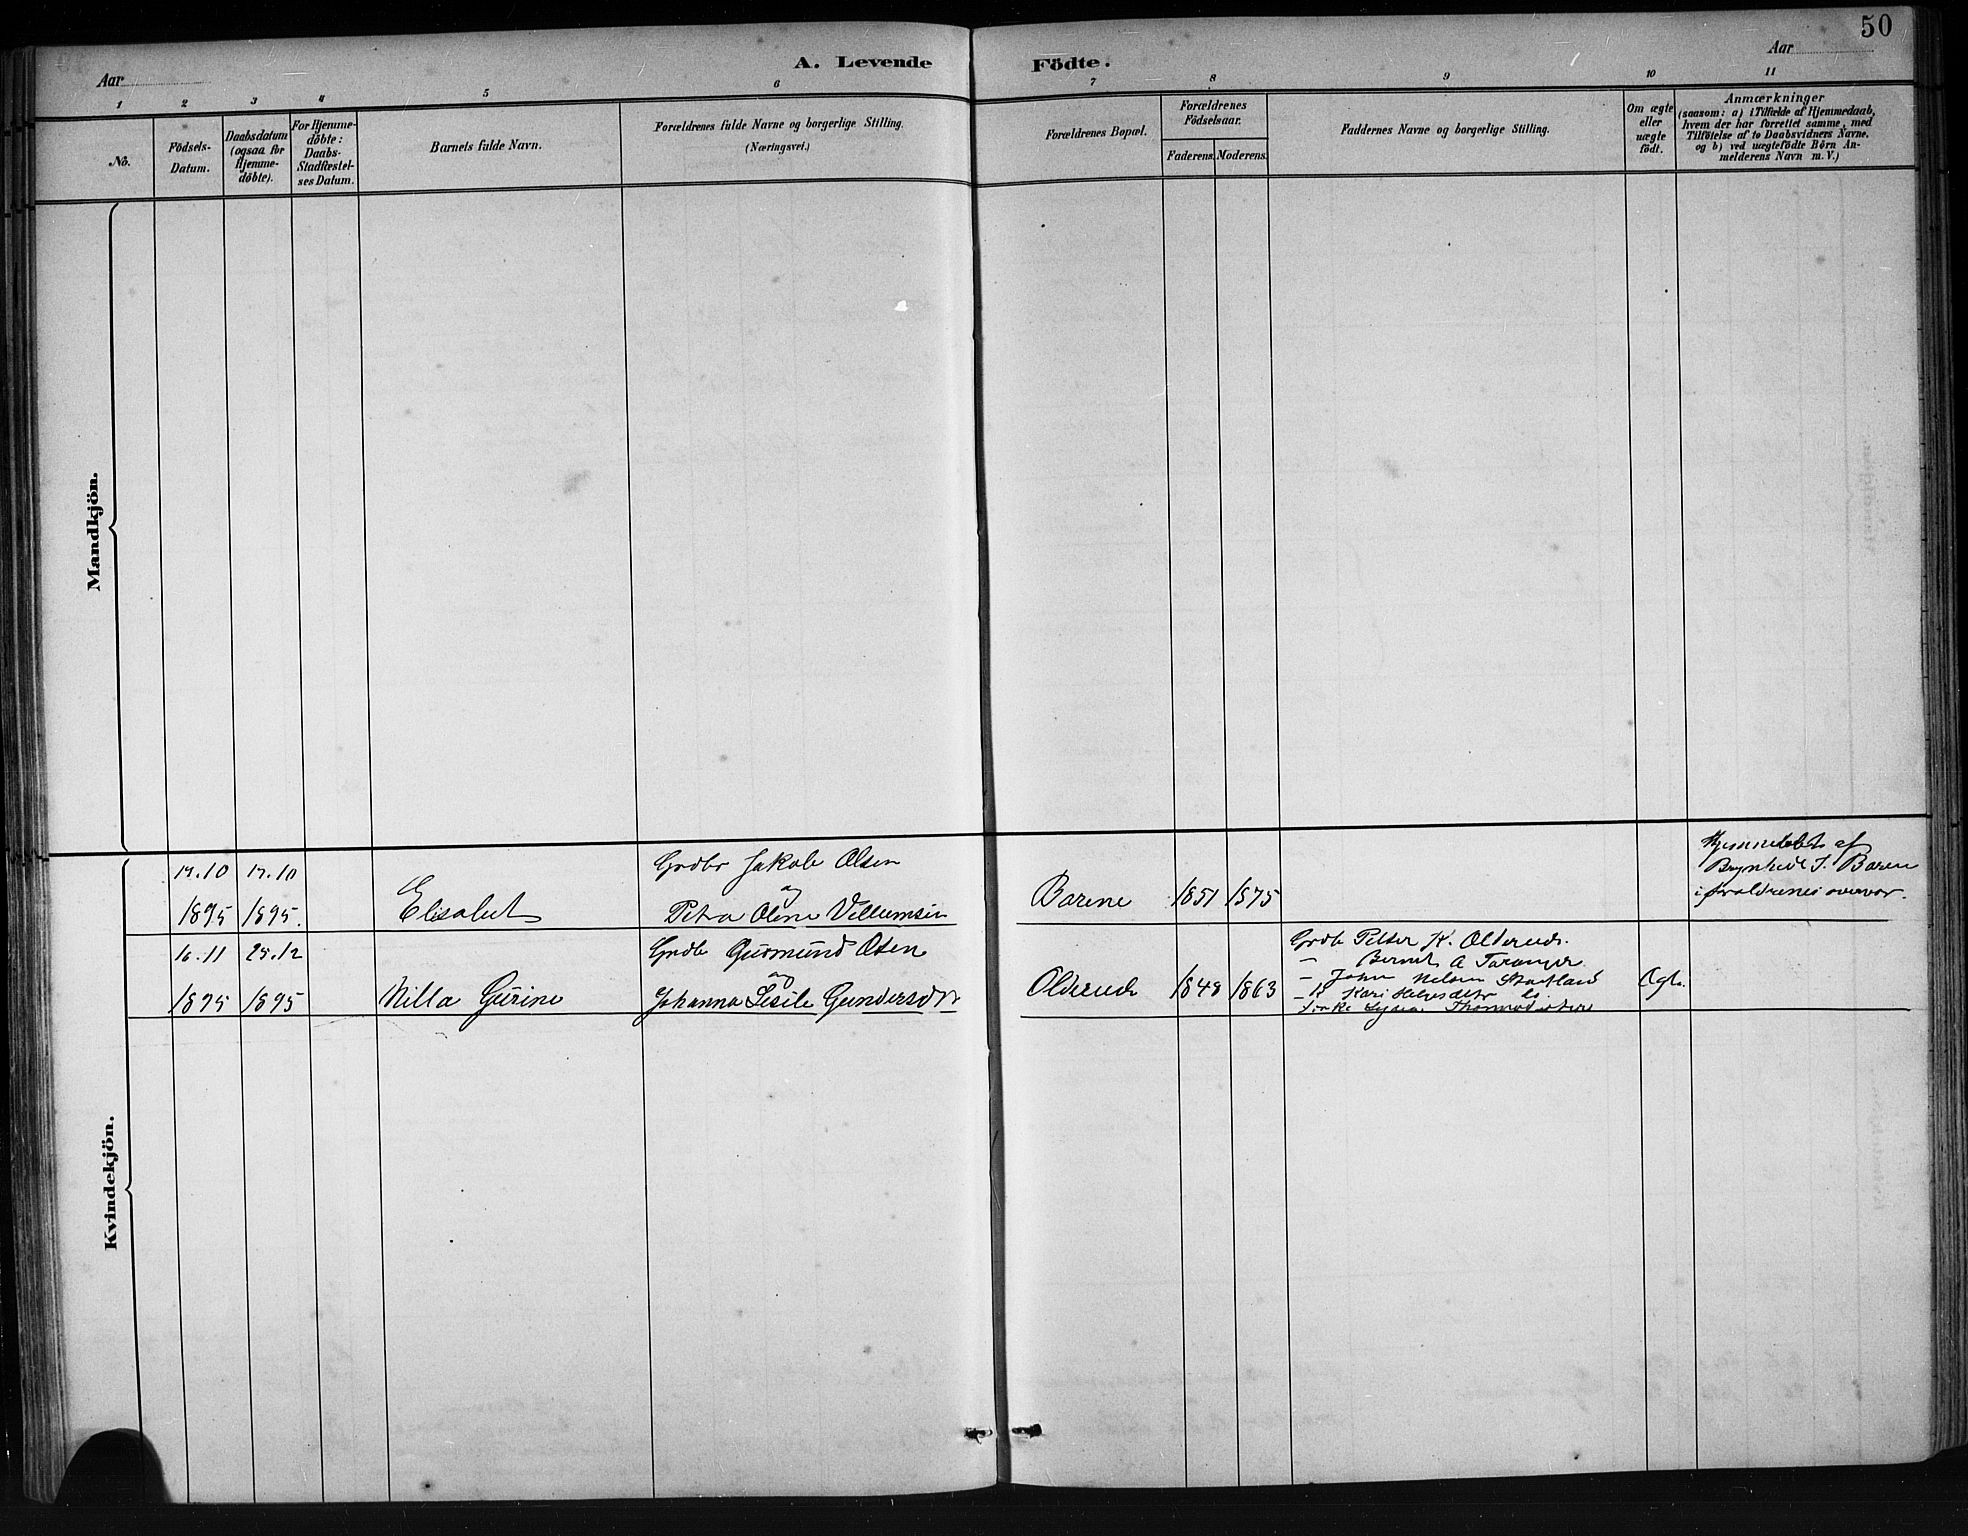 50
Aar
A. Levende
Födte.
Aar
1 2 3 4 5 6 7 8 9 10 11
No.
Födsels-
Datum.
Daabsdatum
(ogsaa for
Hjemme-
døbte).
For Hjemme-
døbte:
Daabs-
Stadfæstel-
ses Datum.
Barnets fulde Navn.
Forældrenes fulde Navne og borgerlige Stilling.
(Næringsvei.)
Forældrenes Bopæl.
Forældrenes
Födselsaar.
Faderens. Moderens.
Faddernes Navne og borgerlige Stilling.
Om ægte
eller
uægte
født.
Anmærkninger
(saasom: a) i Tilfælde af Hjemmedaab,
hvem der har forrettet samme, med
Tilföielse af to Daabsvidners Navne.
og b) ved uægtefödte Börn An-
melderens Navn m. V.)
Mandkjön.
Kvindekjön.
17.10 17.10
1895 1895.
Elisabet
Grdbr Jakob Olsen
og
Petra Oline Villumsen
Barene
1851 1875
af
Brynhild J. Baren
i forældrenes
16.11 25.12
1895 1895
Nilla Gurine
Grdb Gudmund Olsen
og
Johanna Sesile Gundersdtr
Olderude
1848 1863
Grdb Petter K. Olderude.
– Bernt A Taranger.
– John Nelsen
– K Kari Helgesdtr
Pike Lydia
Ægte.